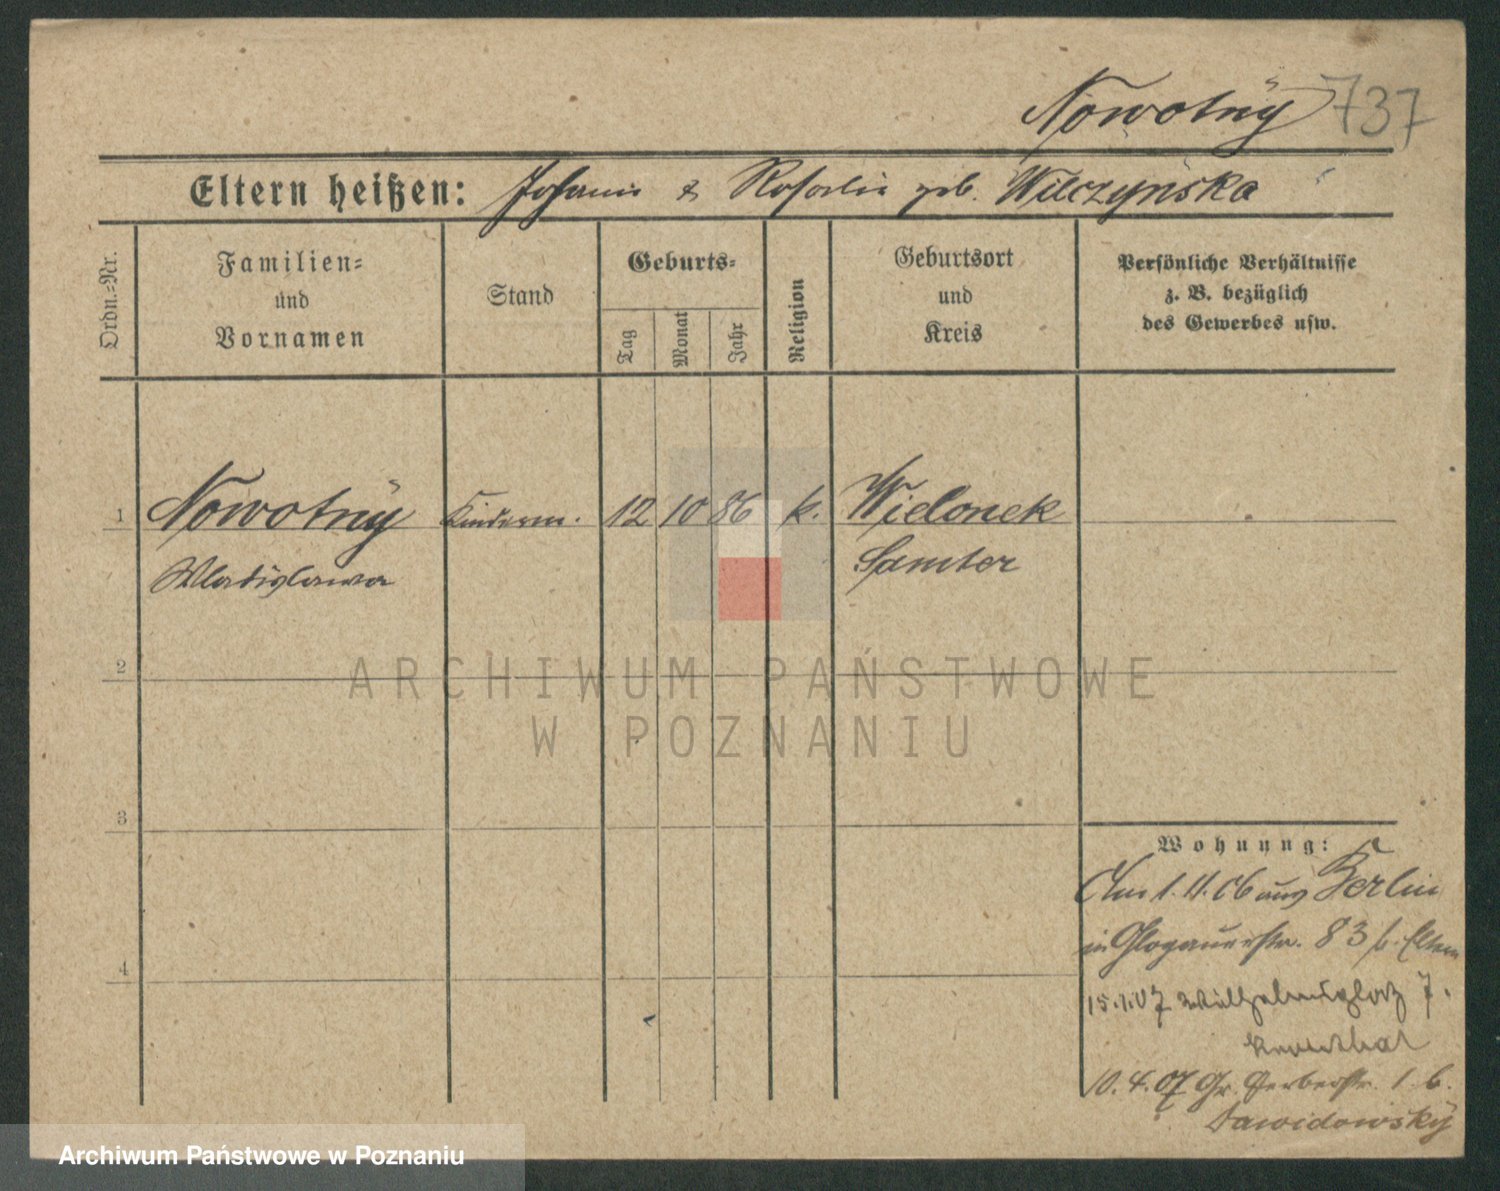 Nowotny 737
Eltern heißen: Johann & Rosalie geb. Wilczynska
Ordn.-Nr.
Familien-
und
Vornamen
Stand
Geburts-
Tag
Monat
Jahr
Religion
Geburtsort
und
Kreis
Persönliche Verhältnisse
z. B. bezüglich
des Gewerbes usw.
1 Nowotny Kinderm. 12 10 86 k. Wielonek
Wladislawa Samter
2
ARCHIWUM PAŃSTWOWE
W POZNANIU
3
Wohnung:
Am 1. 11. 06 aus Berlin
in Glogauerstr. 83 b. Eltern
4
15.1.07 Wilhelmsplatz 7.
10.4.07 Gr. Gerberstr. 1 b.
Dawidowsky
Archiwum Państwowe w Poznaniu